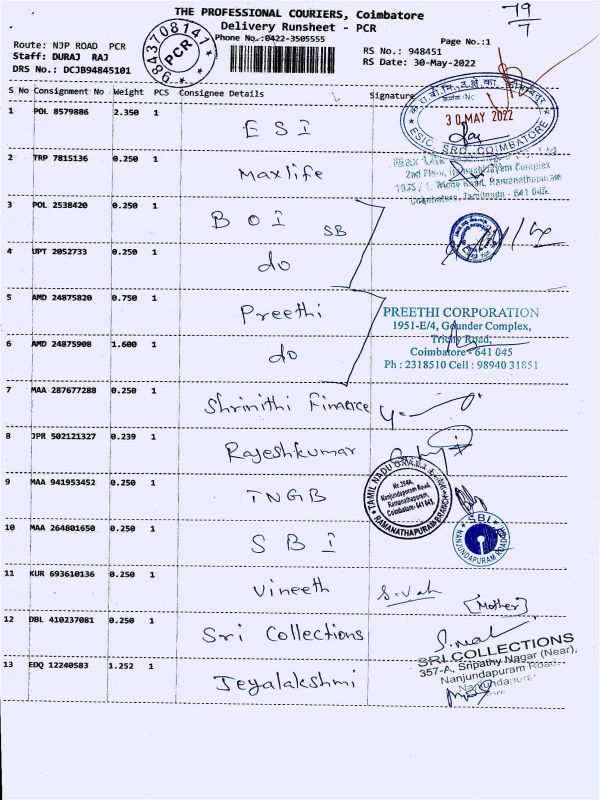 THE PROFESSIONAL COURIERS, Coimbatore
Delivery Runsheet - PCR
Phone No.:0422-3505555
79
7
9843708141
PCR
Page No.:1
Route: NJP ROAD PCR
RS No.: 948451
Staff: DURAJ RAJ
RS Date: 30-May-2022
DRS No.: DCJB94845101
S No Consignment No Weight PCS Consignee Details Signature
1 POL 8579886 2.350 1 ESI
30 MAY 2022
ESIC, SRO, COIMBATORE
2 TRP 7815136 0.250 1 Maxlife
2nd Floor, Complex
1935 / 1, Trichy Road, Ramanathapuram
Coimbatore, Tamilnadu - 641 045.
3 POL 2538420 0.250 1 BOI SB
4 UPT 2052733 0.250 1 do
5 AMD 24875820 0.750 1 Preethi
PREETHI CORPORATION
1951-E/4, Gounder Complex,
Trichy Road,
Coimbatore - 641 045
Ph : 2318510 Cell : 98940 31851
6 AMD 24875908 1.600 1 do
7 MAA 287677288 0.250 1 Shrinithi Finance
8 JPR 502121327 0.239 1 Rajeshkumar
9 MAA 941953452 0.250 1 TNGB
TAMIL NADU GRAMA BANK
Nanjundapuram Road,
Ramanathapuram,
Coimbatore- 641 045.
RAMANATHAPURAM BRANCH
10 MAA 264801650 0.250 1 SBI
SBI
NANJUNDAPURAM ROAD
11 KUR 693610136 0.250 1 Vineeth
[Mother]
12 DBL 410237081 0.250 1 Sri Collections
SRI COLLECTIONS
357-A, Sripathy Nagar (Near),
Nanjundapuram Road,
Nanjundapuram
13 EDQ 12240583 1.252 1 Jeyalakshmi